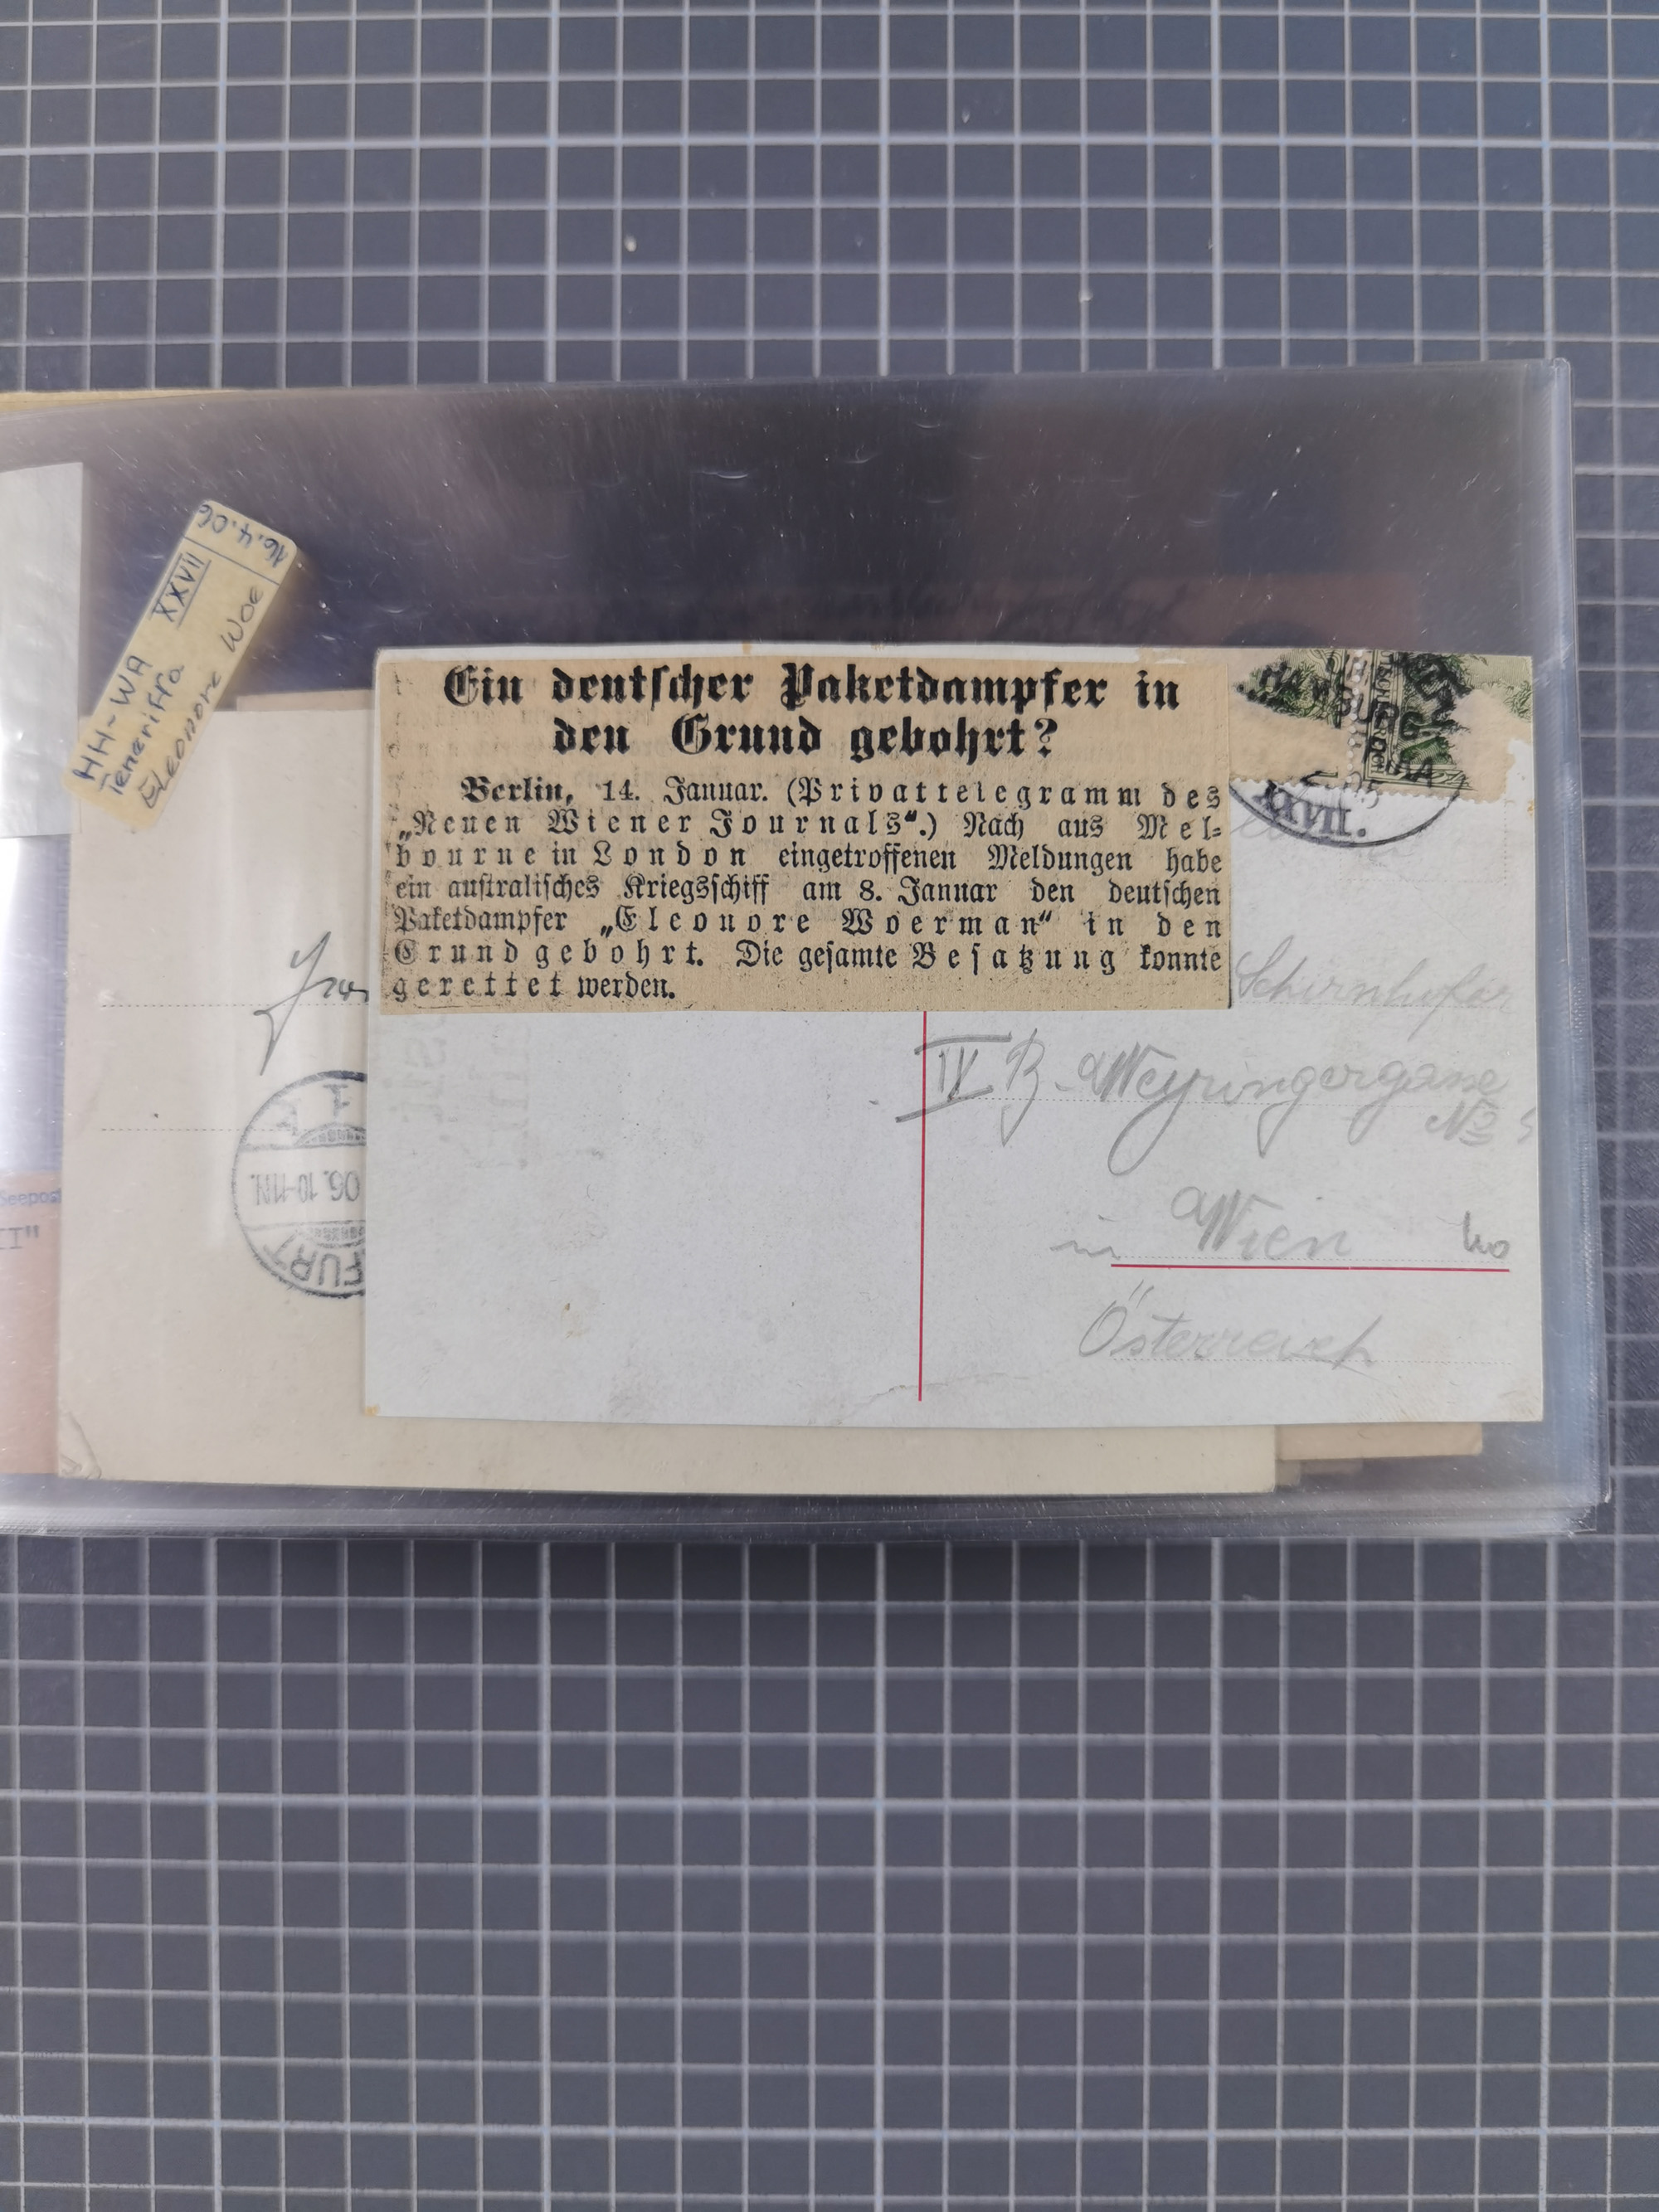 16.4.06
HH-WA XXVII
Teneriffa
Eleonore Woe
Ein deutscher Paketdampfer in
den Grund gebohrt?
Berlin, 14. Januar. (Privattelegramm des
„Neuen Wiener Journals“.) Nach aus Mel-
bourne in London eingetroffenen Meldungen habe
ein australisches Kriegsschiff am 8. Januar den deutschen
Paketdampfer „Eleonore Woerman“ in den
Grund gebohrt. Die gesamte Besatzung konnte
gerettet werden.
HAMBURG-
XXVII.
Schirnhofer
IV B. Weyringergasse
No 5
in Wien
Österreich
06.10-11N.
FURT
Seepost
II"